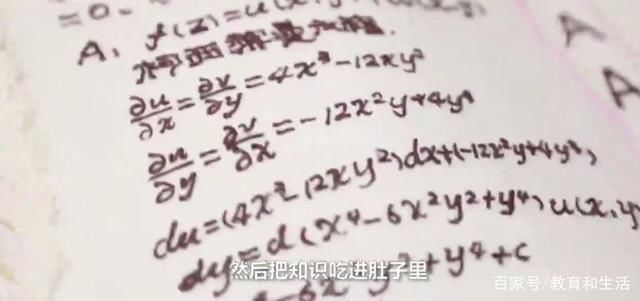 =0.
A. f(z)=u(x,
∂u/∂x=∂v/∂y=4x³-12xy²
∂u/∂y=∂v/∂x=-12x²y+4y³
du=(4x³-12xy²)dx+(-12x²y+4y³)
dy=d(x⁴-6x²y²+y⁴) u(x,y
-6x²y²+y⁴+c
A
A
然后把知识吃进肚子里
百家号/教育和生活